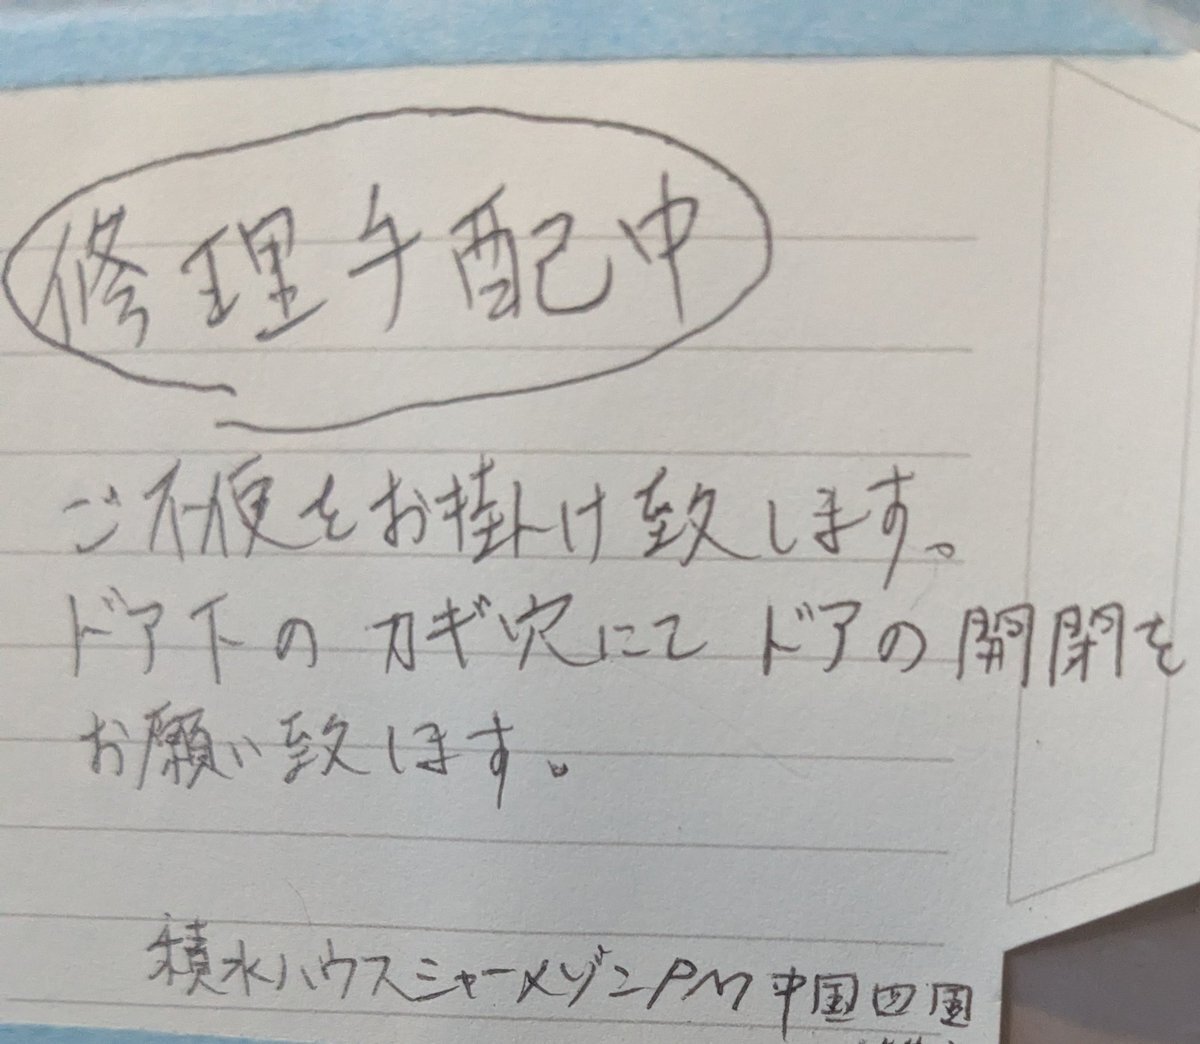 修理手配中
ご不便をお掛け致します。
ドア下のカギ穴にてドアの開閉を
お願い致します。
積水ハウスシャーメゾンPM中国四国